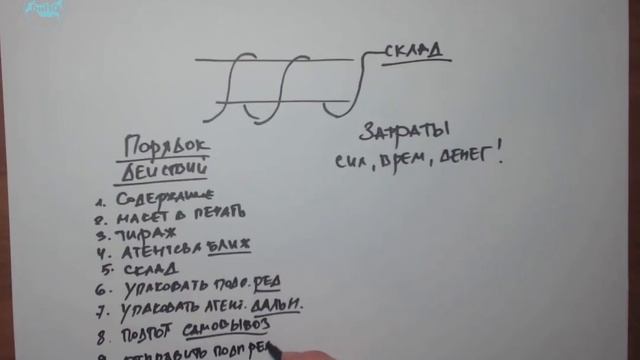 СКЛАД
ЗАТРАТЫ
СИЛ, ВРЕМ, ДЕНЕГ!
ПОРЯДОК
ДЕЙСТВИЙ
1. СОДЕРЖАНИЕ
2. МАКЕТ В ПЕЧАТЬ
3. ТИРАЖ
4. АГЕНТСТВА БЛИЖ
5. СКЛАД
6. УПАКОВАТЬ ПОДП. РЕД
7. УПАКОВАТЬ АГЕНТ. ДАЛЬН.
8. ПОДГОТ САМОВЫВОЗ
9. ОТПРАВИТЬ ПОДП РЕД